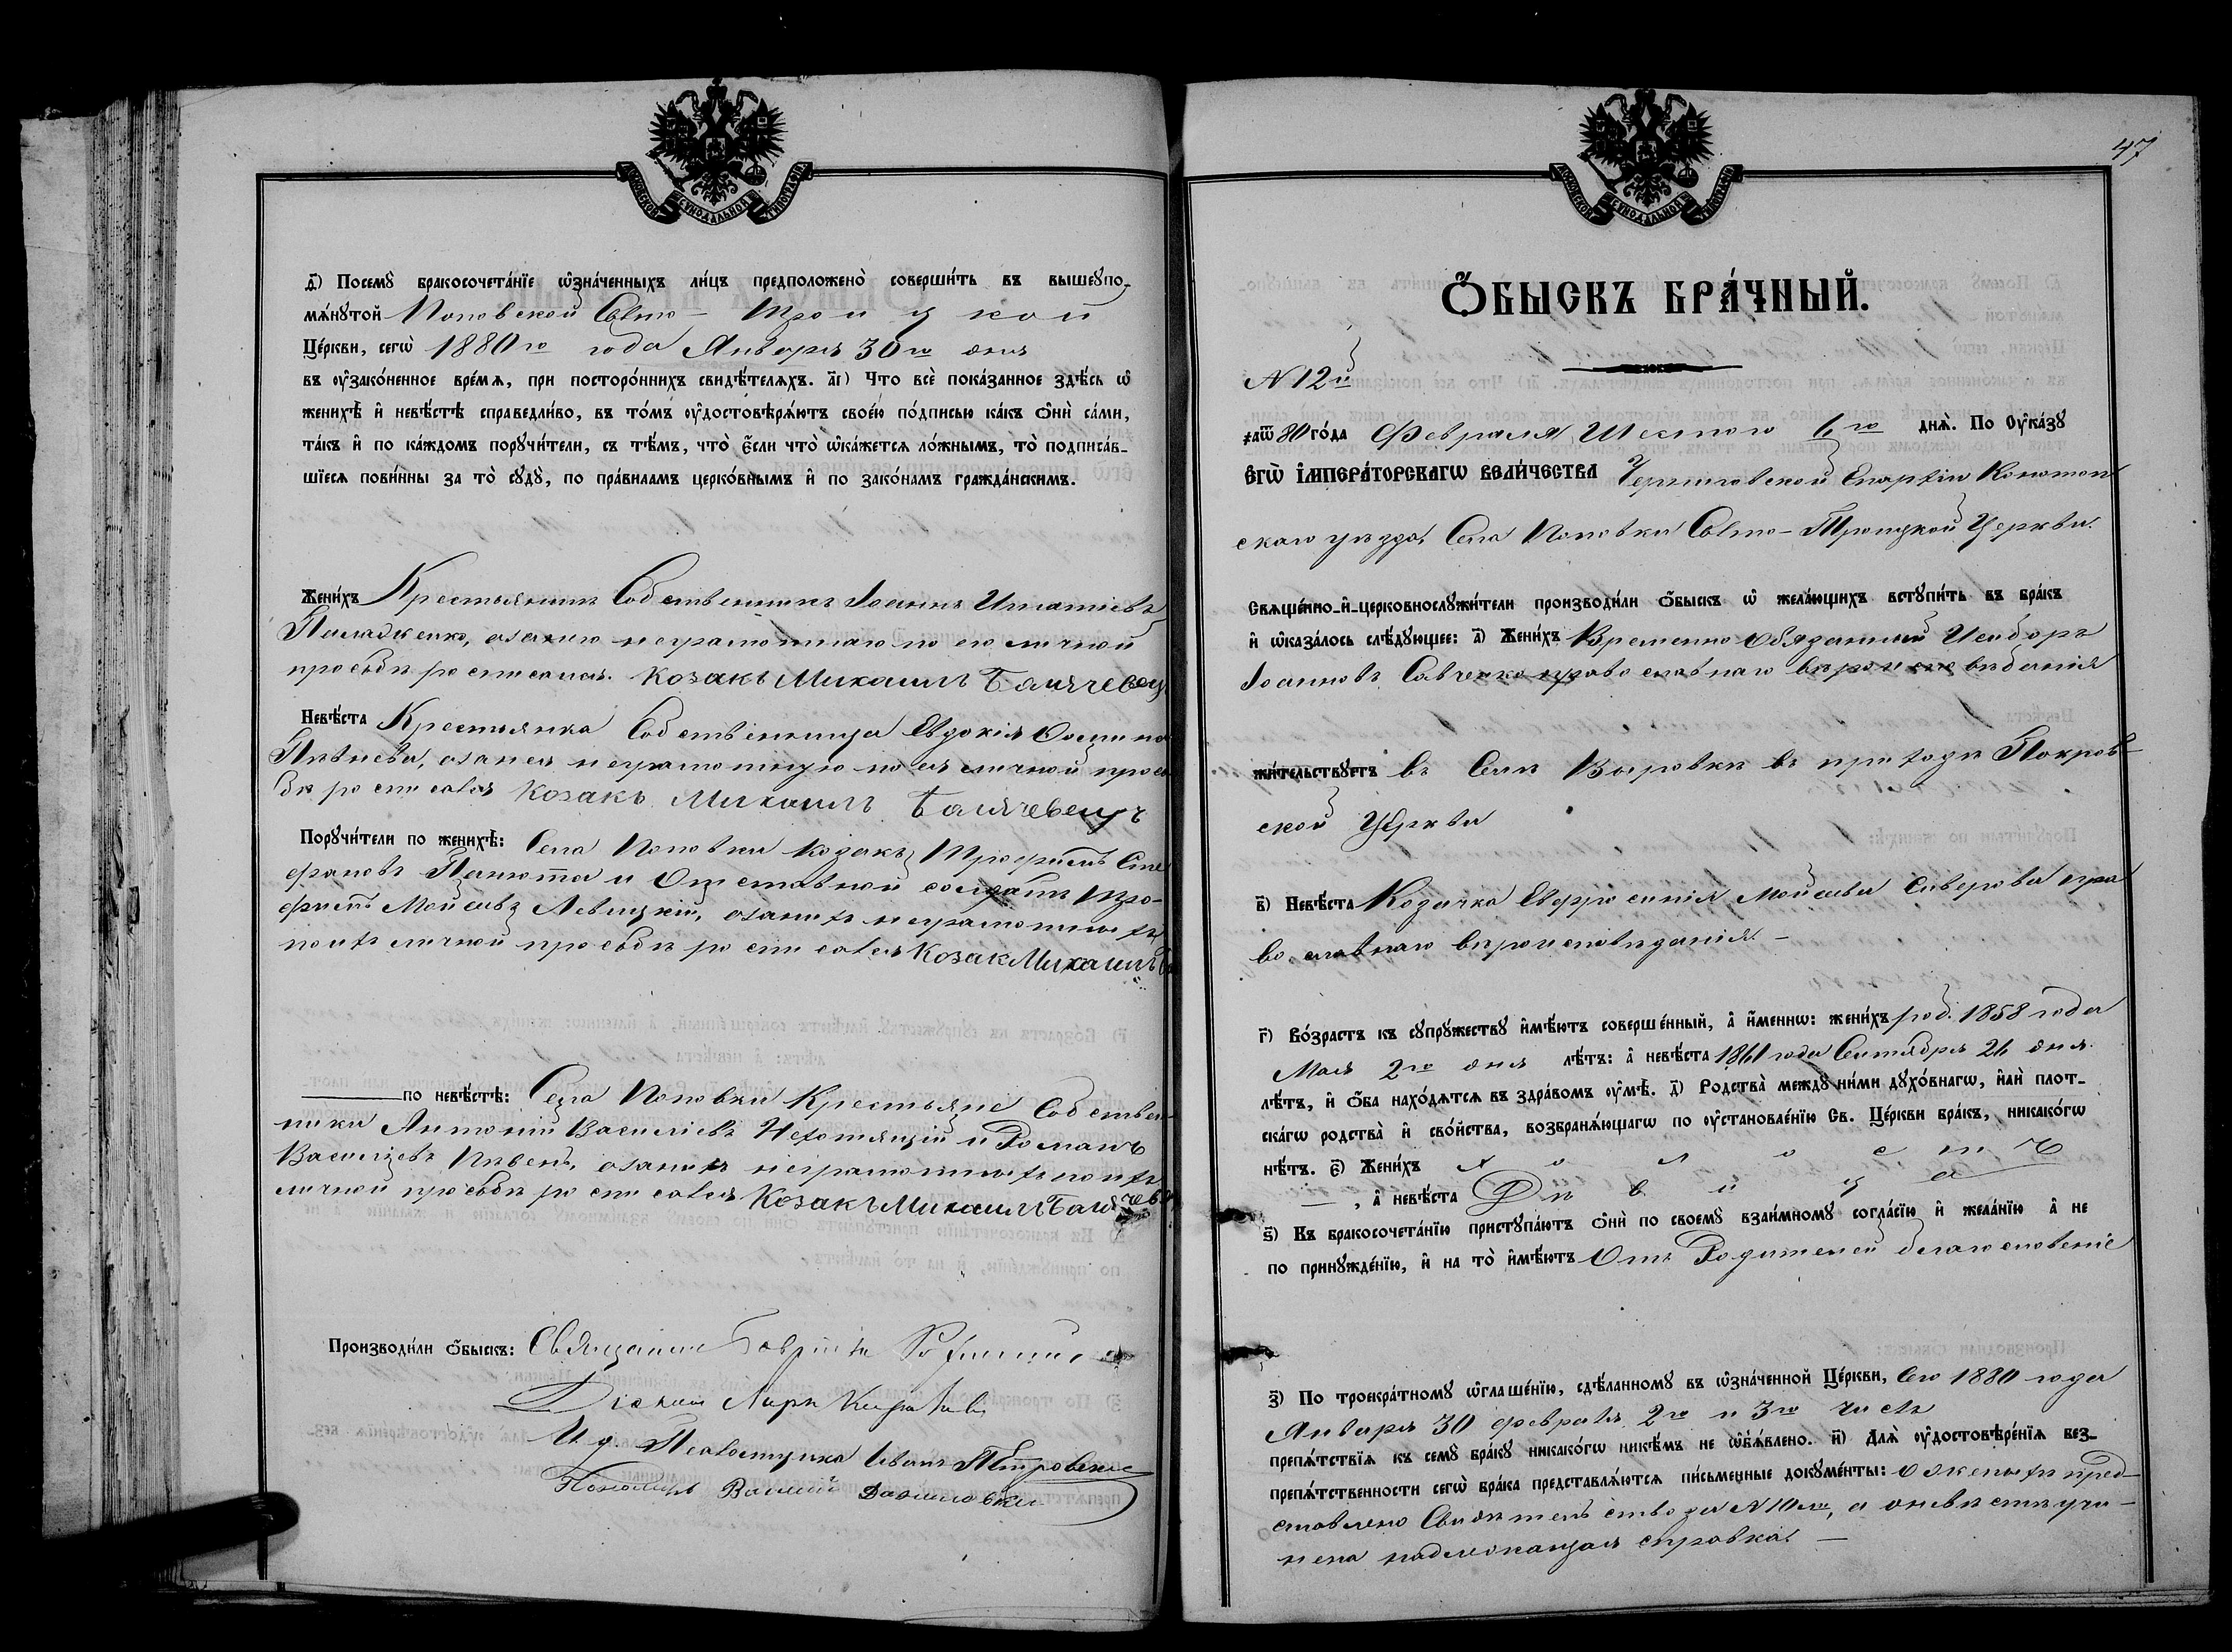 МОСКОВСКОЙ СѴНОДАЛЬНОЙ ТИПОГРАФІИ
д҃) Посемꙋ̀ бракосочета́нїе ѡ҆зна́ченныхъ ли́цъ предположено̀ соверши́ть въ вышеꙋпо-
мѧ́нꙋтой Поповской Свято- Троицкой
Це́ркви, сегѡ̀ 1880го года Января 30го дня
въ оу҆зако́ненное вре́мѧ, при посторо́ннихъ свидѣ́телѧхъ. а҃і) Что всѐ пока́занное здѣ́сь ѡ҆
женихѣ̀ и҆ невѣ́стѣ справедли́во, въ то́мъ оу҆достовѣрѧ́ютъ свое́ю по́дписью ка́къ ѻ҆нѝ са́ми,
та́къ и҆ по ка́ждомъ порꙋчи́тели, съ тѣ́мъ, что̀ є҆́сли что̀ ѡ҆ка́жется ло́жнымъ, то̀ подписа́в-
шїеся пови́нны за то̀ сꙋдꙋ̀, по пра́виламъ церко́внымъ и҆ по зако́намъ гражда́нскимъ.
Жени́хъ Крестьянинъ Собственникъ Іоаннъ Игнатіевъ
а за него неграмотнаго по его личной
просьбѣ росписался. Козакъ Михаилъ
Невѣ́ста Крестьянка Собственница Евдокія
Пѣвнева, а за нея неграмотную по ея личной прось
бѣ росписался Козакъ Михаилъ
Порꙋчи́тели по женихѣ̀: Села Поповки козакъ Трофимъ Сте
фановъ Панюта и Отставной солдатъ Тро-
фимъ Мойсеевъ Левицкій, а за нихъ неграмотныхъ
по ихъ личной просьбѣ росписался Козак Михаилъ
по невѣ́стѣ: Села Поповки Крестьяне Собствен-
ники Антоній Василіевъ и Романъ
Василіевъ Пивень, а за нихъ неграмотныхъ по ихъ
личной просьбѣ росписался Козакъ Михаилъ
Производи́ли ѻ҆́быскъ: Священникъ
Діаконъ
И. д. Псаломщика Иванъ Петровскій
Пономарь Василій Даниловскій
47
МОСКОВСКОЙ СѴНОДАЛЬНОЙ ТИПОГРАФІИ
Ѻ҆́БЫСКЪ БРА́ЧНЫЙ.
N 12й
҂аѿ 80 го́да Февраля Шестого 6го днѧ̀. По Оу҆ка́зꙋ
Є҆гѡ̀ І҆мпера́торскагѡ Вели́чества Черниговской Епархіи Конотоп
скаго уѣзда, Села Поповки Свято-Троицкой Церкви.
Свѧще́нно-и҆-церковнослꙋжи́тели производи́ли ѻ҆́быскъ ѡ҆ жела́ющихъ встꙋпи́ть въ бра́къ
и҆ ѡ҆каза́лось слѣ́дꙋющее: а҃) Жени́хъ Временно-обязанный Исидоръ
Іоанновъ Савченко православнаго вѣроисповѣданія
жи́тельствꙋетъ въ Селѣ Выровкѣ въ приходѣ Покров-
ской Церкви
в҃) Невѣ́ста Козачка Евфросинія Мойсеева Сиверова пра
вославнаго вѣроисповѣданія. —
г҃) Во́зрастъ къ сꙋпрꙋ́жествꙋ и҆мѣ́ютъ соверше́нный, а҆ и҆́меннѡ: жени́хъ род. 1858 года
Мая 2го дня лѣ́тъ: а҆ невѣ́ста 1861 года Сентября 26 дня.
лѣ́тъ, и҆ ѻ҆́ба нахо́дѧтсѧ въ здра́вомъ оу҆мѣ̀. д҃) Родства̀ междꙋ̀ ни́ми дꙋхо́внагѡ, и҆лѝ плот-
ска́гѡ родства̀ и҆ сво́йства, возбранѧ́ющагѡ по оу҆становле́нїю Св. Це́ркви бра́къ, никако́гѡ
нѣ́тъ. є҃) Жени́хъ холостъ
—, а҆ невѣ́ста Дѣвица
ѕ҃) Къ бракосочета́нїю пристꙋпа́ютъ ѻ҆нѝ по своемꙋ̀ взаи́мномꙋ согла́сїю и҆ жела́нїю а҆ не
по принꙋжде́нїю, и҆ на то̀ и҆мѣ́ютъ Отъ Родителей благословеніе
з҃) По троекра́тномꙋ ѡ҆глаше́нїю, сдѣ́ланномꙋ въ ѡ҆зна́ченной Це́ркви, Сего 1880 года
Января 30 февраля 2го и 3го числъ
препѧ́тствїѧ къ семꙋ̀ бра́кꙋ никако́гѡ никѣ́мъ не ѡ҆б̾ѧ́влено. и҃) Длѧ̀ оу҆достовѣре́нїѧ без-
препѧ́тственности сегѡ̀ бра́ка представлѧ́ютсѧ пи́сьменные докꙋме́нты: о женихѣ пред-
ставлено Свидѣтельство за N 10мъ, а о невѣстѣ учи-
нена надлежащая справка. —